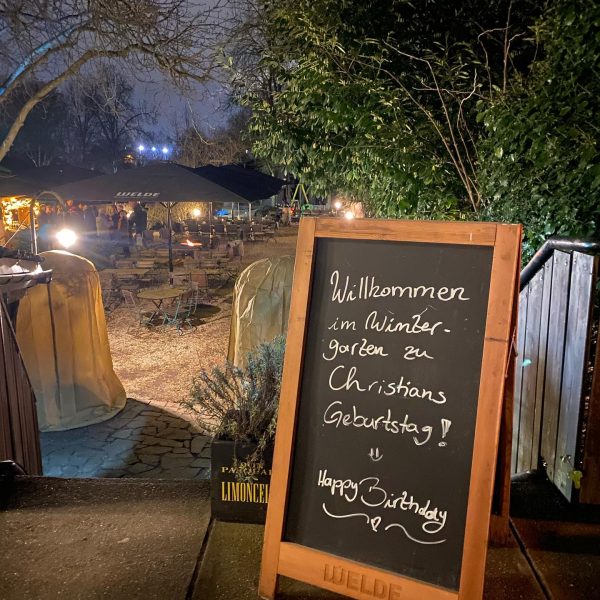 WELDE
Willkommen
im Winter-
garten zu
Christians
Geburtstag!
Happy Birthday
WELDE
LIMONCE